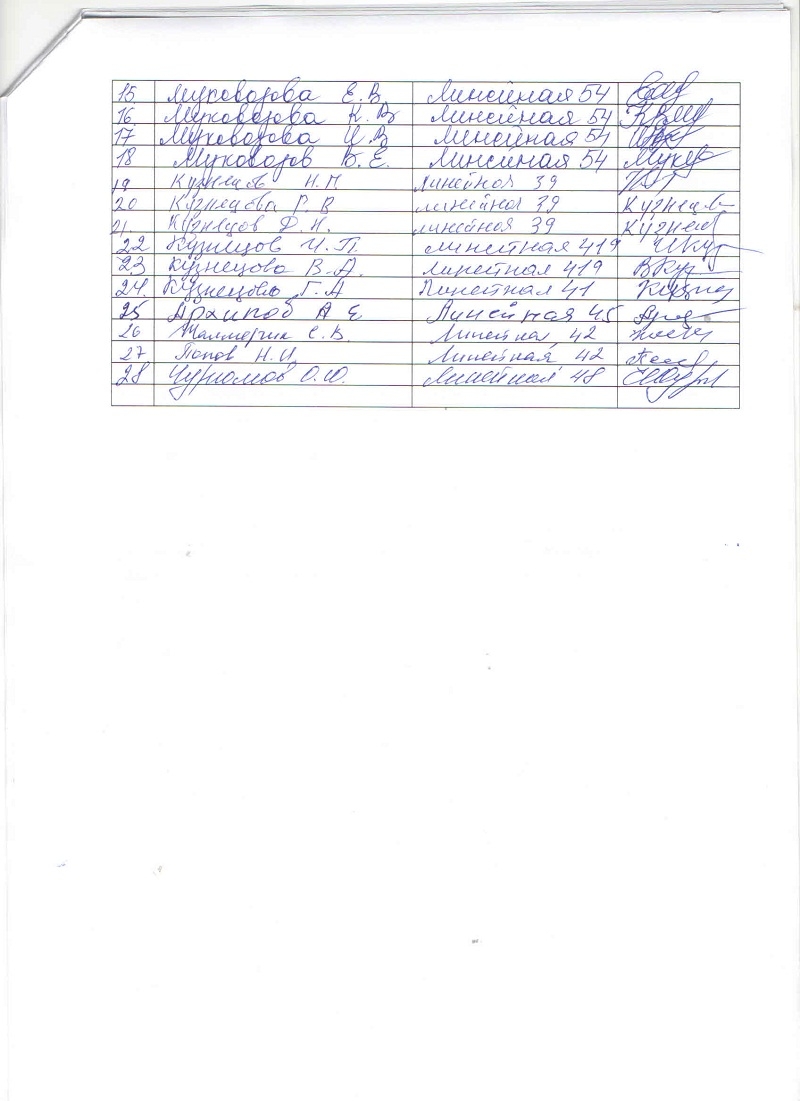 15. Муковозова Е.В. Линейная 54
16. Муковозова К.В. Линейная 54
17 Муковозова И.В. Линейная 54
18 Муковозов В.Е. Линейная 54 Муков
19 Кузнецов Н.П линейная 39
20 Кузнецова Р.В линейная 39 Кузнецов
21. Кузнецов Ф.Н. линейная 39 Кузнецов
22 Кузнецов И.П. линейная 41а ИКуз
23 Кузнецова В.А. линейная 41а ВКуз
24. Кузнецова Г.А Линейная 41
25 Архипов А Е Линейная 45
26 С.В. Линейная 42
27 Попов Н.И. Линейная 42
28 О.Ю. Линейная 48